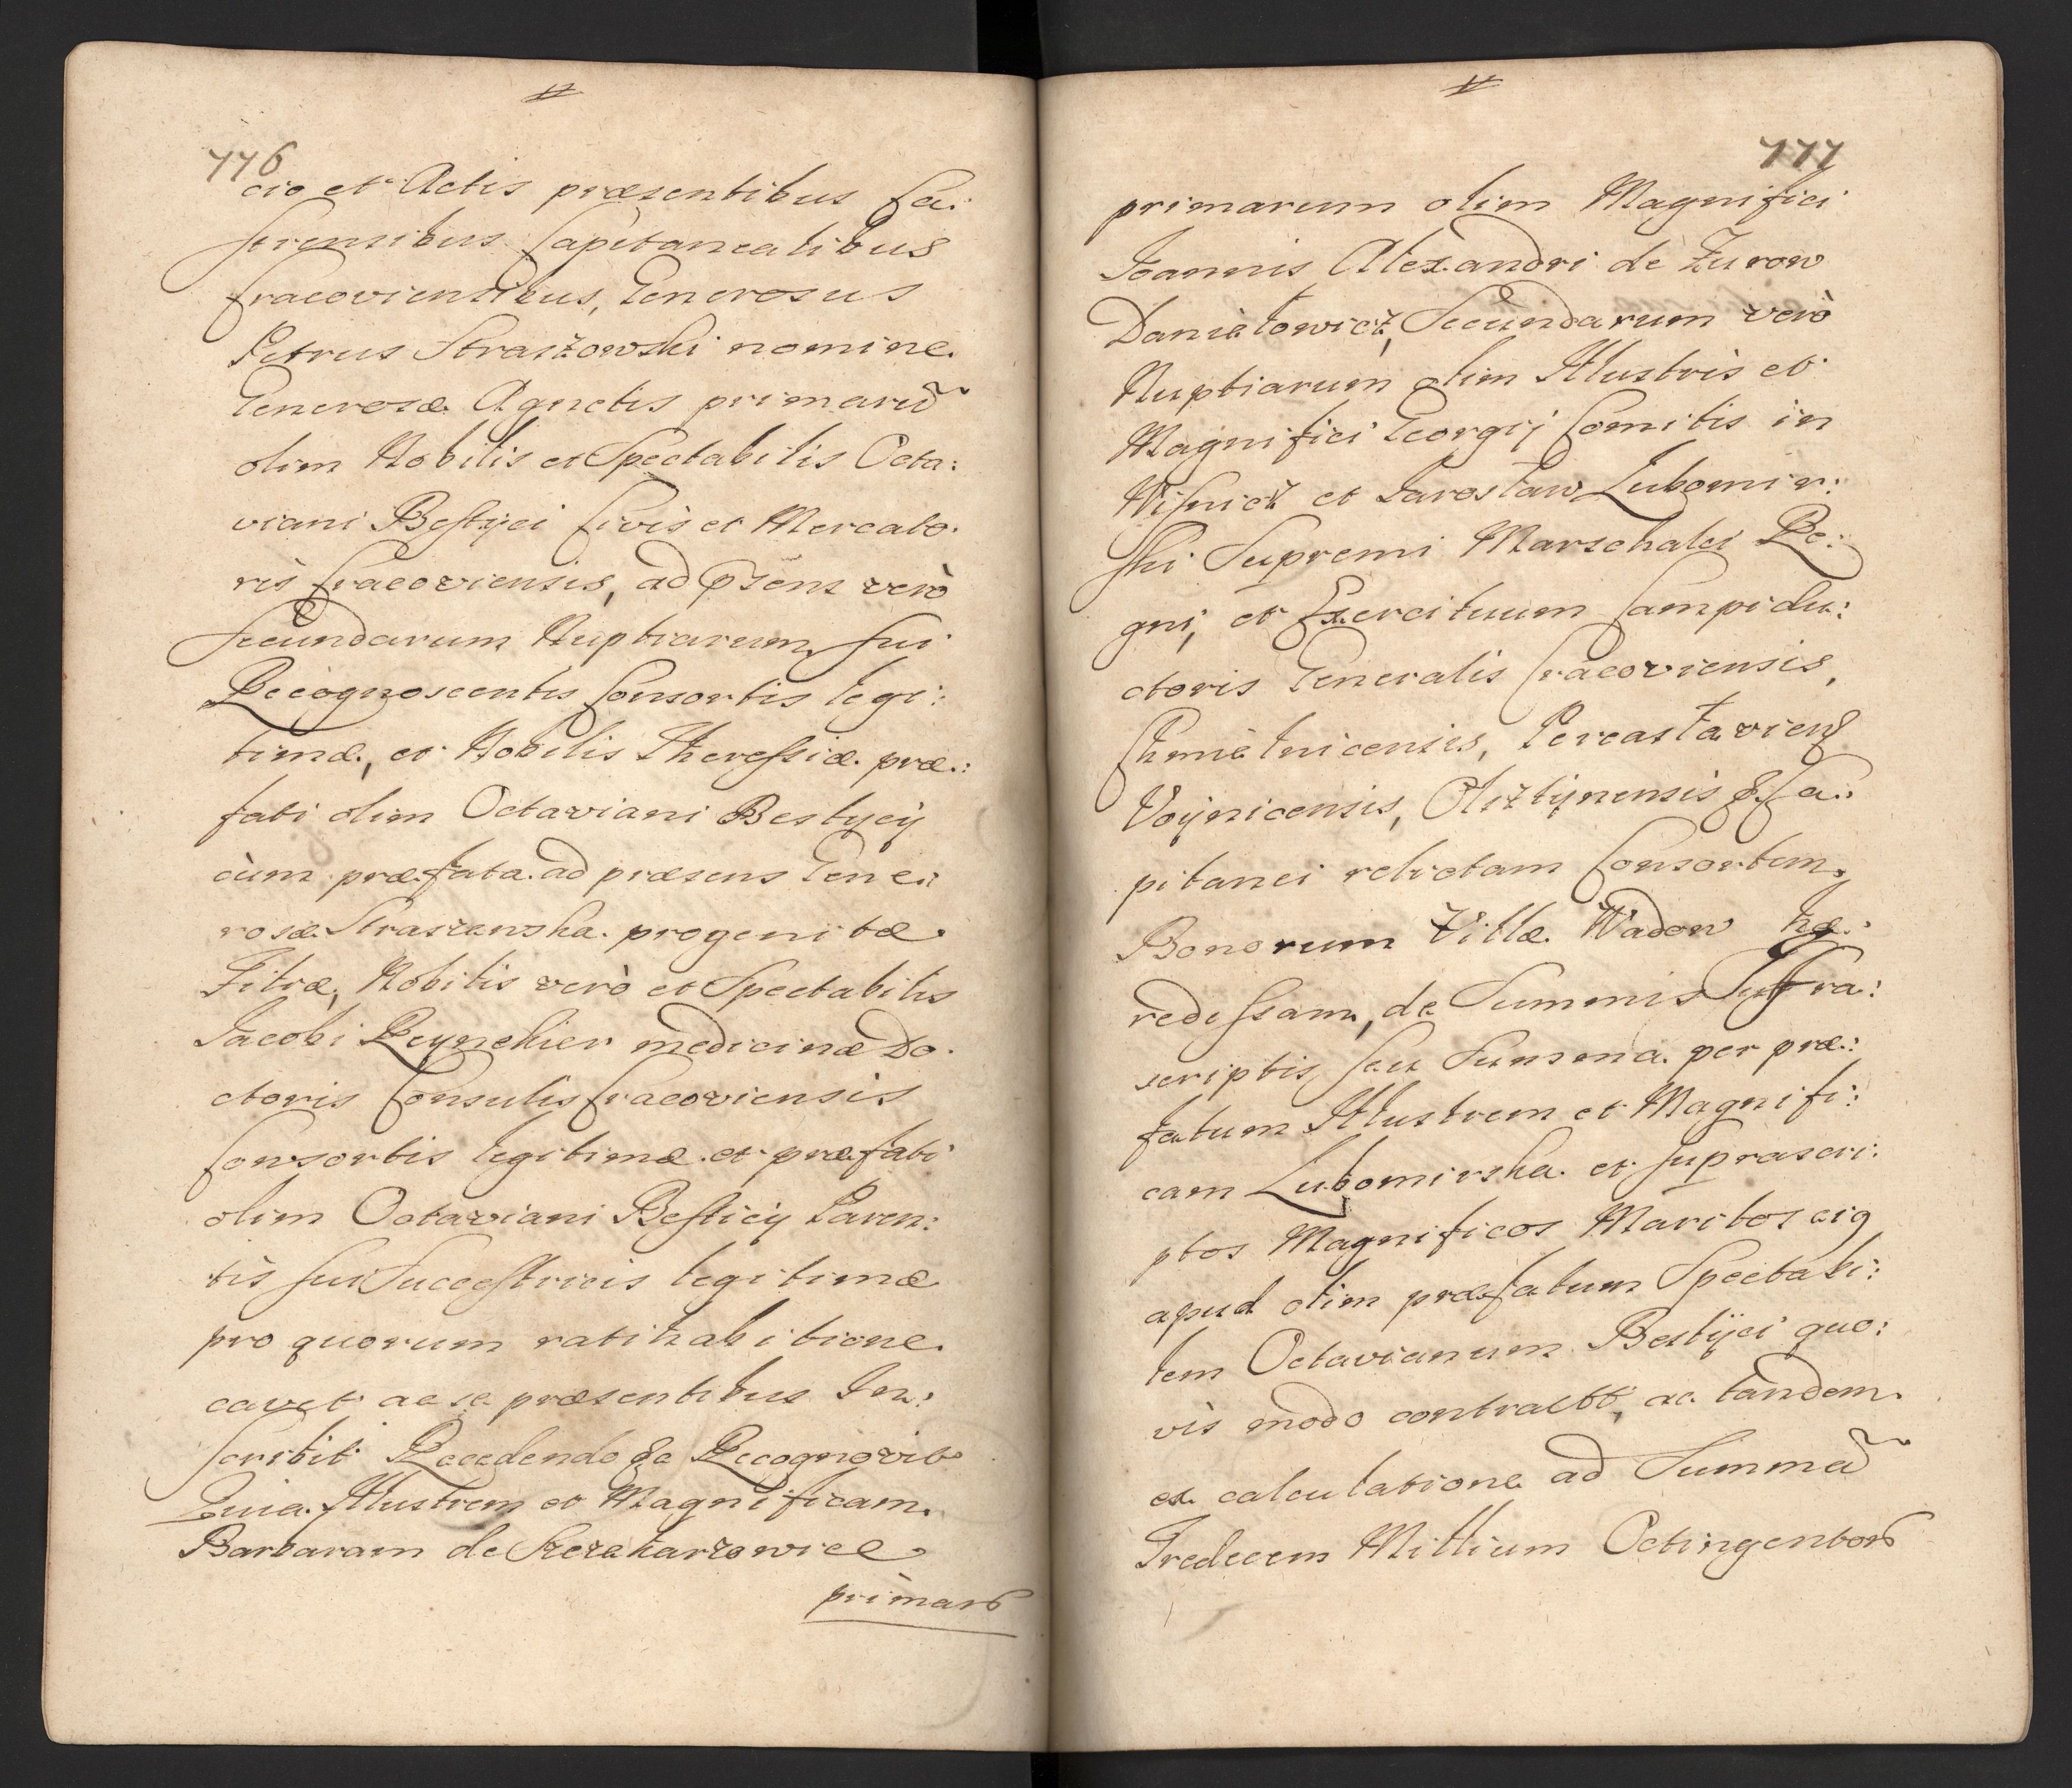 776
cio et Actis præsentibus Ca:
strensibus Capitanealibus
Cracoviensibus, Generosus
Petrus Straszowski nomine
Generosæ Agnetis primarũ
olim Nobilis et Spectabilis Octa:
viani Bestyci Civis et Mercato:
ris Cracoviensis, ad p̃sens verò
Secundarum Nuptiarum sui
Recognoscentis Consortis legi:
timæ, et Nobilis Theressiæ præ:
fati olim Octaviani Bestycij
cùm præfata ad præsens Gene:
rosæ Straszewska progenitæ
Filiæ, Nobilis verò et Spectabilis
Jacobi Reynekier medicinæ Do:
ctoris Consulis Cracoviensis
Consortis legitimæ et præfati
olim Octaviani Besticij Paren:
tis sui Successtricis legitimæ
pro quorum ratihabitione
cavet ac se præsentibus In:
scribit Recedendo &c Recognovit
Quia Illustrem et Magnificam
Barbaram de Szczekarzowice
primar
777
primarum olim Magnifici
Joannis Alexandri de Zurow
Daniełowicz, Secundarum verò
Nuptiarum olim Illustris et
Magnifici Georgij Comitis in
Wisnicz et Jarosław Lubomir:
ski Supremi Marschalci Re:
gni, et Exercituum Campidu:
ctoris Generalis Cracoviensis,
Chmielnicensis, Pereasłaviens
Voynicensis, Olsztynensis & Ca:
pitanei relictam Consortem,
Bonorum Villæ Wadow Hæ:
redissam, de Summis Infra:
scriptis seu Summa per præ:
fatum Illustrem et Magnifi:
cam Lubomirska et suprascri:
ptos Magnificos Maritos eiq
apud olim præfatum Spectabi:
lem Octavianum Bestyci quo:
vis modo contractt, ac tandem
ex calculatione ad Summã
Tredecem Millium Octingentor